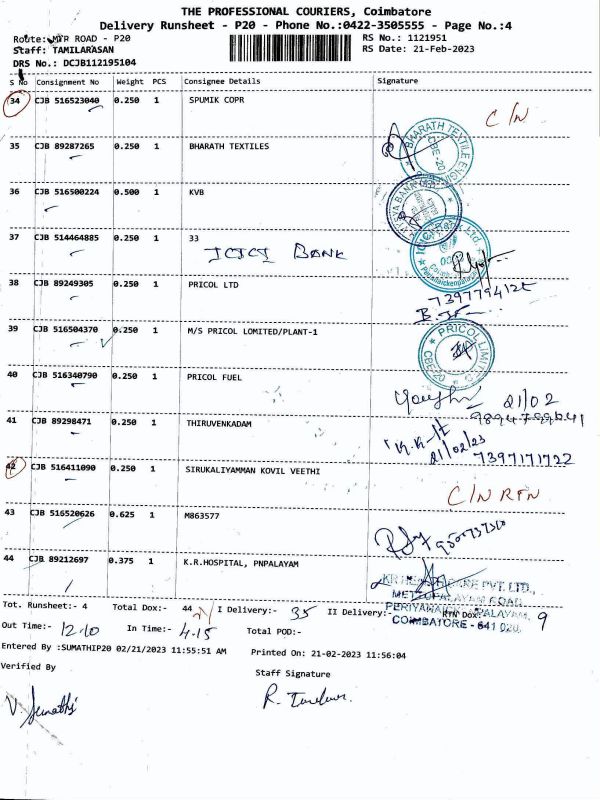 THE PROFESSIONAL COURIERS, Coimbatore
Delivery Runsheet - P20 - Phone No.:0422-3505555 - Page No.:4
Route: MTP ROAD - P20
RS No.: 1121951
Staff: TAMILARASAN
RS Date: 21-Feb-2023
DRS No.: DCJB112195104
S No Consignment No Weight PCS Consignee Details Signature
34 CJB 516523040 0.250 1 SPUMIK COPR C/N
35 CJB 89287265 0.250 1 BHARATH TEXTILES
BHARATH TEXTILE
CBE-20
36 CJB 516500224 0.500 1 KVB
37 CJB 514464885 0.250 1 33
ICICI BANK
38 CJB 89249305 0.250 1 PRICOL LTD
39 CJB 516504370 0.250 1 M/S PRICOL LOMITED/PLANT-1
PRICOL LIMITED
CBE-20
40 CJB 516340790 0.250 1 PRICOL FUEL
21/02
41 CJB 89298471 0.250 1 THIRUVENKADAM
21/02/23
7397171722
42 CJB 516411090 0.250 1 SIRUKALIYAMMAN KOVIL VEETHI
C/N RTN
43 CJB 516520626 0.625 1 M863577
44 CJB 89212697 0.375 1 K.R.HOSPITAL, PNPALAYAM
CARE PVT. LTD.,
METTUPALAYAM ROAD,
PERIYANAICKENPALAYAM,
COIMBATORE - 641 020.
Tot. Runsheet:- 4 Total Dox:- 44 I Delivery:- 35 II Delivery:- RTN Dox:- 9
Out Time:- 12.10 In Time:- 4.15 Total POD:-
Entered By :SUMATHIP20 02/21/2023 11:55:51 AM Printed On: 21-02-2023 11:56:04
Verified By Staff Signature
V. Sumathi